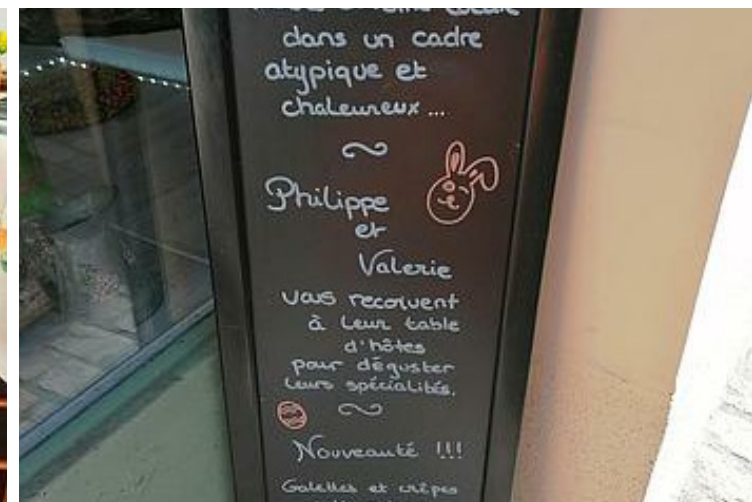 dans un cadre
atypique et
chaleureux ...
Philippe
et
Valerie
vous reçoivent
à leur table
d'hôtes
pour déguster
leurs spécialités.
Nouveauté !!!
Galettes et crêpes